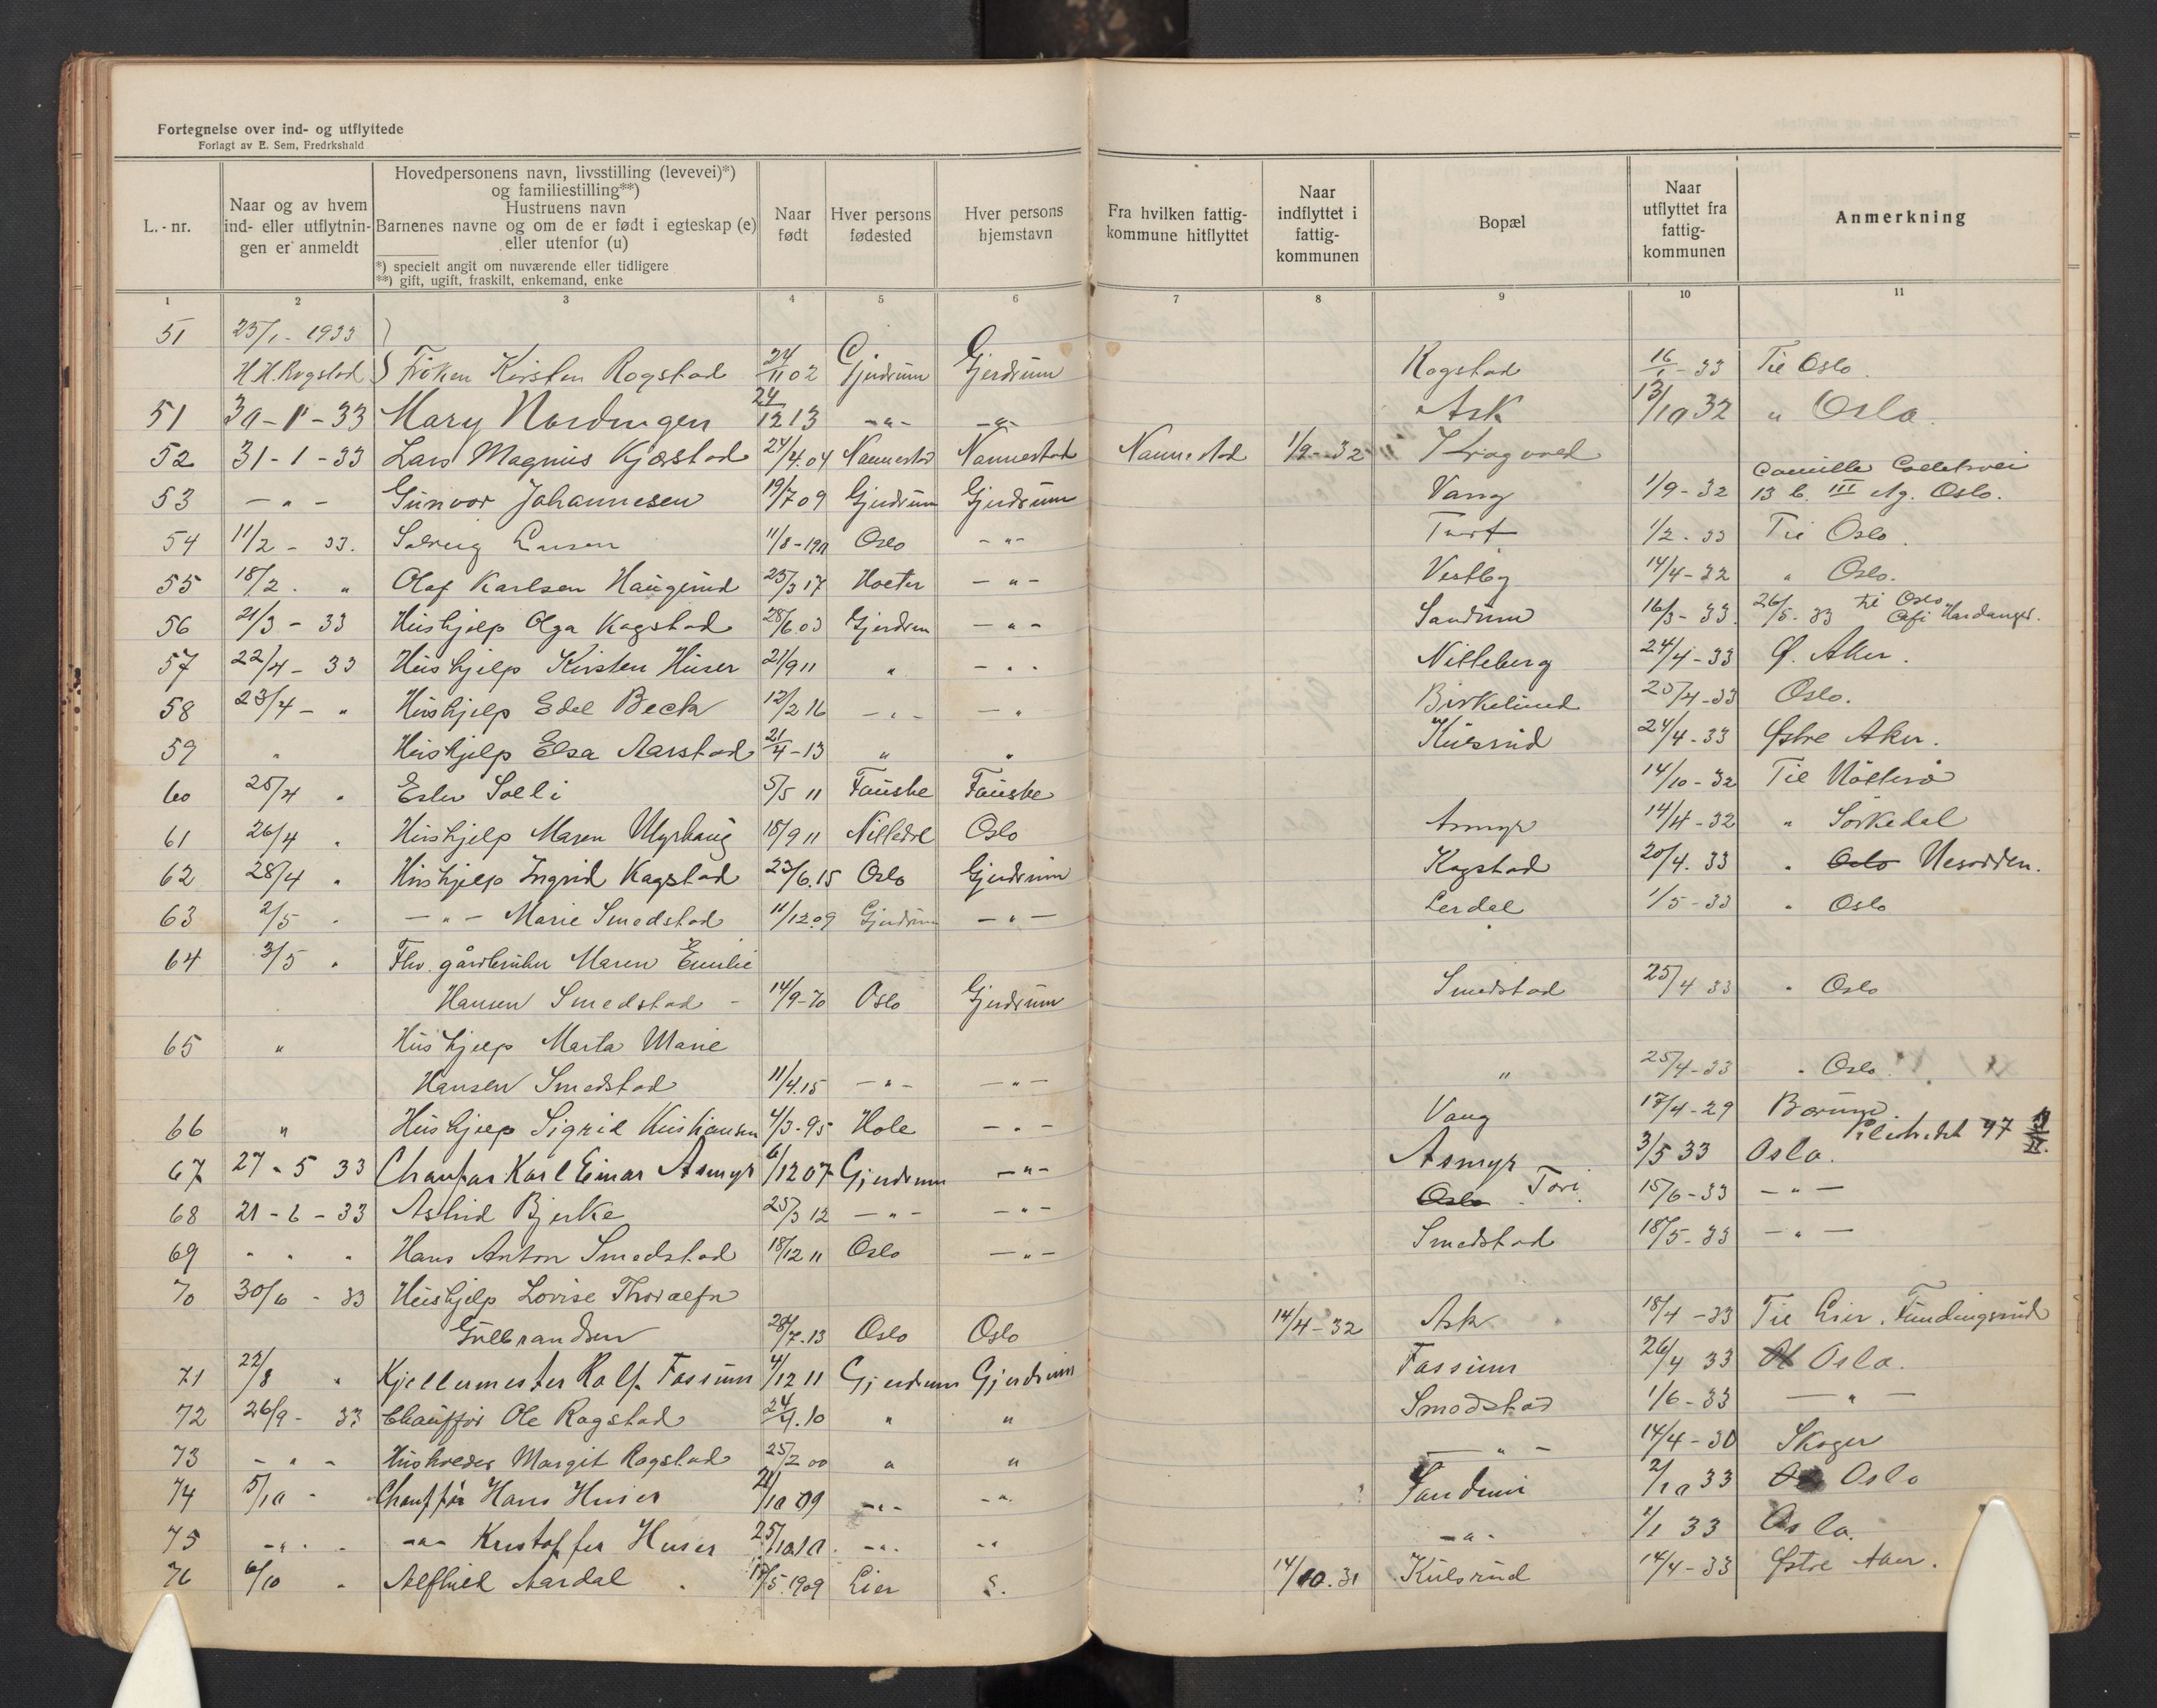 Fortegnelse over ind- og utflyttede
Forlagt av E. Sem, Fredrkshald
L.-nr. | Naar og av hvem ind- eller utflytningen er anmeldt | Hovedpersonens navn, livsstilling (levevei)*) og familiestilling**) Hustruens navn Barnenes navne og om de er født i egteskap (e) eller utenfor (u) *) specielt angit om nuværende eller tidligere **) gift, ugift, fraskilt, enkemand, enke | Naar født | Hver persons fødested | Hver persons hjemstavn | Fra hvilken fattigkommune hitflyttet | Naar indflyttet i fattigkommunen | Bopæl | Naar utflyttet fra fattigkommunen | Anmerkning
1 2 3 4 5 6 7 8 9 10 11
51 23/1 - 1933
H.H. Rogstad Frøken Kirsten Rogstad 24/11 02 Gjerdrum Gjerdrum Rogstad 16/1 - 33 Til Oslo
51 30-1-33 Mary Nordengen 24/12 13 -"- -"- Ask 13/10 32 " Oslo
52 31-1-33 Lars Magnus Kjærstad 24/4.04 Nannestad Nannestad Nannestad 1/9-32 Kragvold
53 -"- Gunvor Johannesen 19/7 09 Gjerdrum Gjerdrum Vang 1/9-32 Camilla Colletsvei 13 b. III Og. Oslo.
54 11/2 - 33. Solveig Larsen 11/8-1911 Oslo -"- 1/2-33 Til Oslo.
55 18/2. " Olaf Karlsen Haugerud 23/3 17 Holter -"- Vestby 14/4-32 " Oslo.
56 21/3 - 33 Hushjelp Olga Kogstad 28/6.03 Gjerdrum -"- Sandum 16/3-33. 26/5-33 til Oslo Cafe Hardanger.
57 22/4 - 33 Hushjelp Kirsten Huser 21/9 11 " -"- Nitteberg 24/4-33 Ø. Aker.
58 23/4 - " Hushjelp Edel Beck 12/2 16 -"- -" Birkelund 25/4-33 Oslo.
59 " Hushjelp Elsa Aarstad 21/4-13 " " Kulsrud 24/4-33 Østre Aker.
60 25/4 " Ester Solli 5/5 11 Fauske Fauske 14/10-32 Til Nøtterø
61 26/4 " Hushjelp Maren Myrhaug 18/9 11 Nittedal Oslo Asmyr 14/4-32 " Sørkedal
62 28/4 " Hushjelp Ingrid Kogstad 23/6.15 Oslo Gjerdrum Kogstad 20/4.33 " Oslo Nesodden.
63 2/5 " -"- Marie Smedstad 11/12.09 Gjerdrum -"- Lerdal 1/5-33 " Oslo
64 3/5 " Fhv. gårdbruker Maren Emilie
Hansen Smedstad - 14/9-70 Oslo Gjerdrum Smedstad 25/4 33 " Oslo
65 " Hushjelp Marta Marie
Hansen Smedstad 11/4.15 -"- -"- " 25/4-33 " Oslo
66 " Hushjelp Sigrid Kristiansen 4/3-95 Hole -"- Vang 17/4-29 Bærum.
67 27-5 33 Chaufør Karl Einar Asmyr 6/12 07 Gjerdrum -"- Asmyr 3/5 33 Oslo. Pilestredet 97
68 21-6-33 Astrid Bjerke 25/3 12 -"- -"- Oslo Tori 15/6-33 -"-
69 " " " Hans Anton Smedstad 18/12 11 Oslo -"- Smedstad 18/5-33 -"-
70 30/6 - 33 Hushjelp Lovise
Gulbrandsen 28/7.13 Oslo Oslo 14/4-32 Ask 18/4-33 Til Lier.
71 22/8 " Kjellermester Rolf Fossum 4/12 11 Gjerdrum Gjerdrum Fossum 26/4 33 Oslo.
72 26/9 - 33 Chauffør Ole Rogstad 24/9.10 " " Smedstad 1/6-33 -"-
73 -"- Margit Rogstad 25/2 00 " " -"- 14/4-30 Skoger
74 5/10 - Chauffør Hans Huser 21/10 09 -"- -"- Sandum 2/10 33 Oslo
75 -"- -"- Kristoffer Huser 25/10 10. -"- -"- -"- 1/1 33 Oslo.
76 6/10 " Alfhild Aardal 17/5.1909 Lier S. 14/10.31 Kulsrud 14/4-33 Østre Aker.